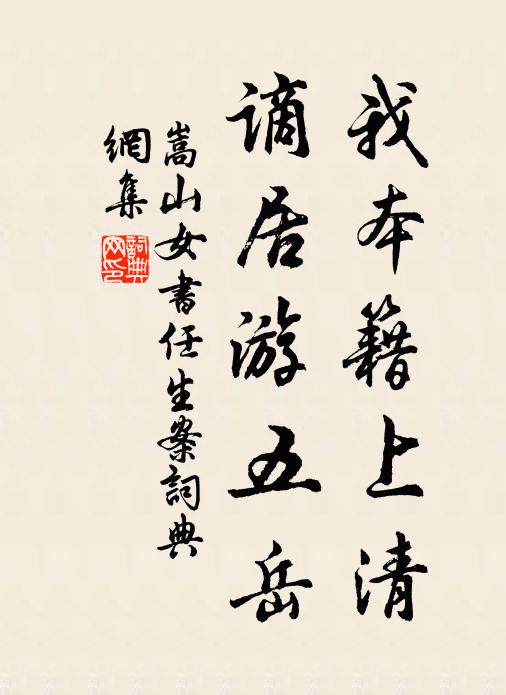 我本籍上清
谪居游五岳
嵩山女书任生案詞典
網集
詞典
网印